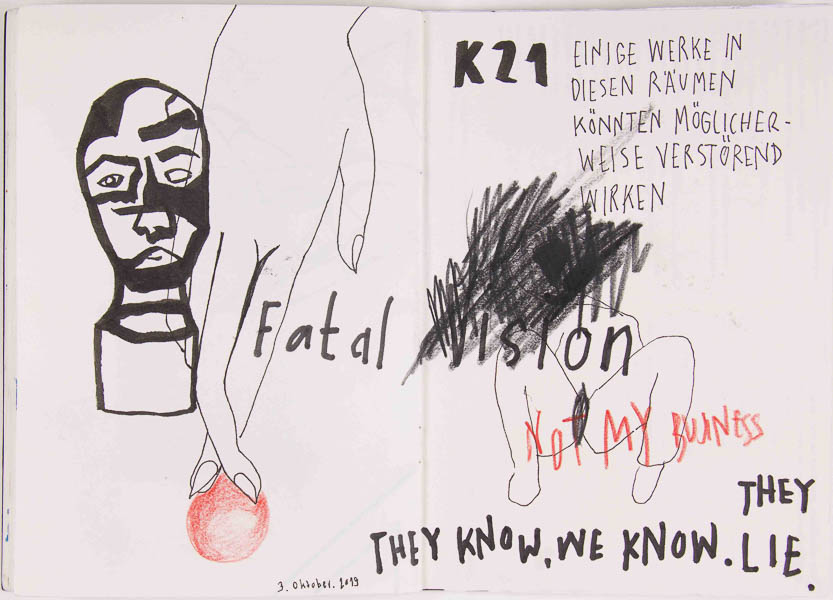 K21
EINIGE WERKE IN
DIESEN RÄUMEN
KÖNNTEN MÖGLICHER-
WEISE VERSTÖREND
WIRKEN
Fatal Vision
NOT MY BUINESS
THEY
THEY KNOW, WE KNOW. LIE.
3. Oktober. 2019